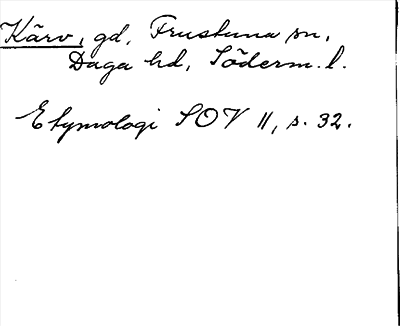 Kärv, gd, Frustuna sn,
Daga hd, Söderm. l.
Etymologi SOV II, s. 32.